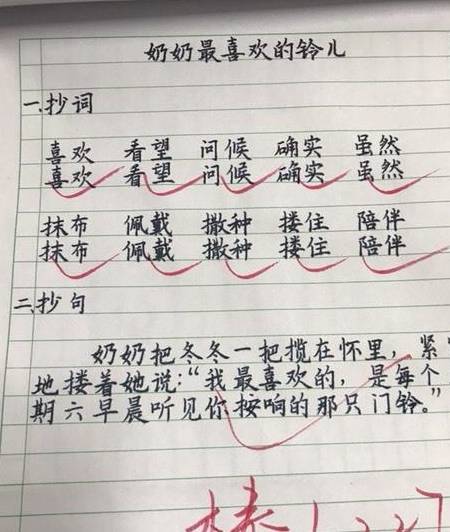 奶奶最喜欢的铃儿
一.抄词
喜欢 看望 问候 确实 虽然
喜欢 看望 问候 确实 虽然
抹布 佩戴 撒种 搂住 陪伴
抹布 佩戴 撒种 搂住 陪伴
二.抄句
奶奶把冬冬一把揽在怀里，紧
地搂着她说：“我最喜欢的，是每个
期六早晨听见你按响的那只门铃。”
棒